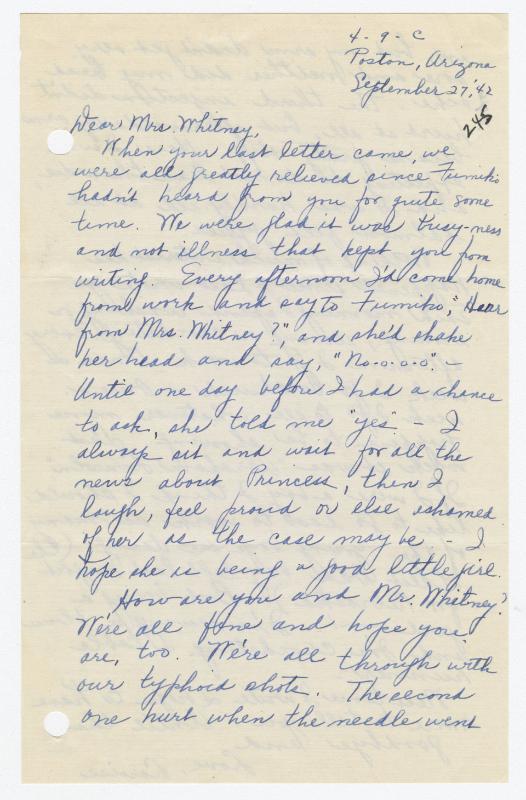 4-9-C
Poston, Arizona
September 27, '42
245
Dear Mrs. Whitney,
When your last letter came, we
were all greatly relieved since Fumiko
hadn't heard from you for quite some
time. We were glad it was busy-ness
and not illness that kept you from
writing. Every afternoon I'd come home
from work and say to Fumiko, "Hear
from Mrs. Whitney?", and she'd shake
her head and say, "No-o-o-o". —
Until one day before I had a chance
to ask, she told me "yes" — I
always sit and wait for all the
news about Princess, then I
laugh, feel proud or else ashamed
of her as the case may be — I
hope she is being a good little girl.
How are you and Mr. Whitney?
We're all fine and hope you
are, too. We're all through with
our typhoid shots. The second
one hurt when the needle went